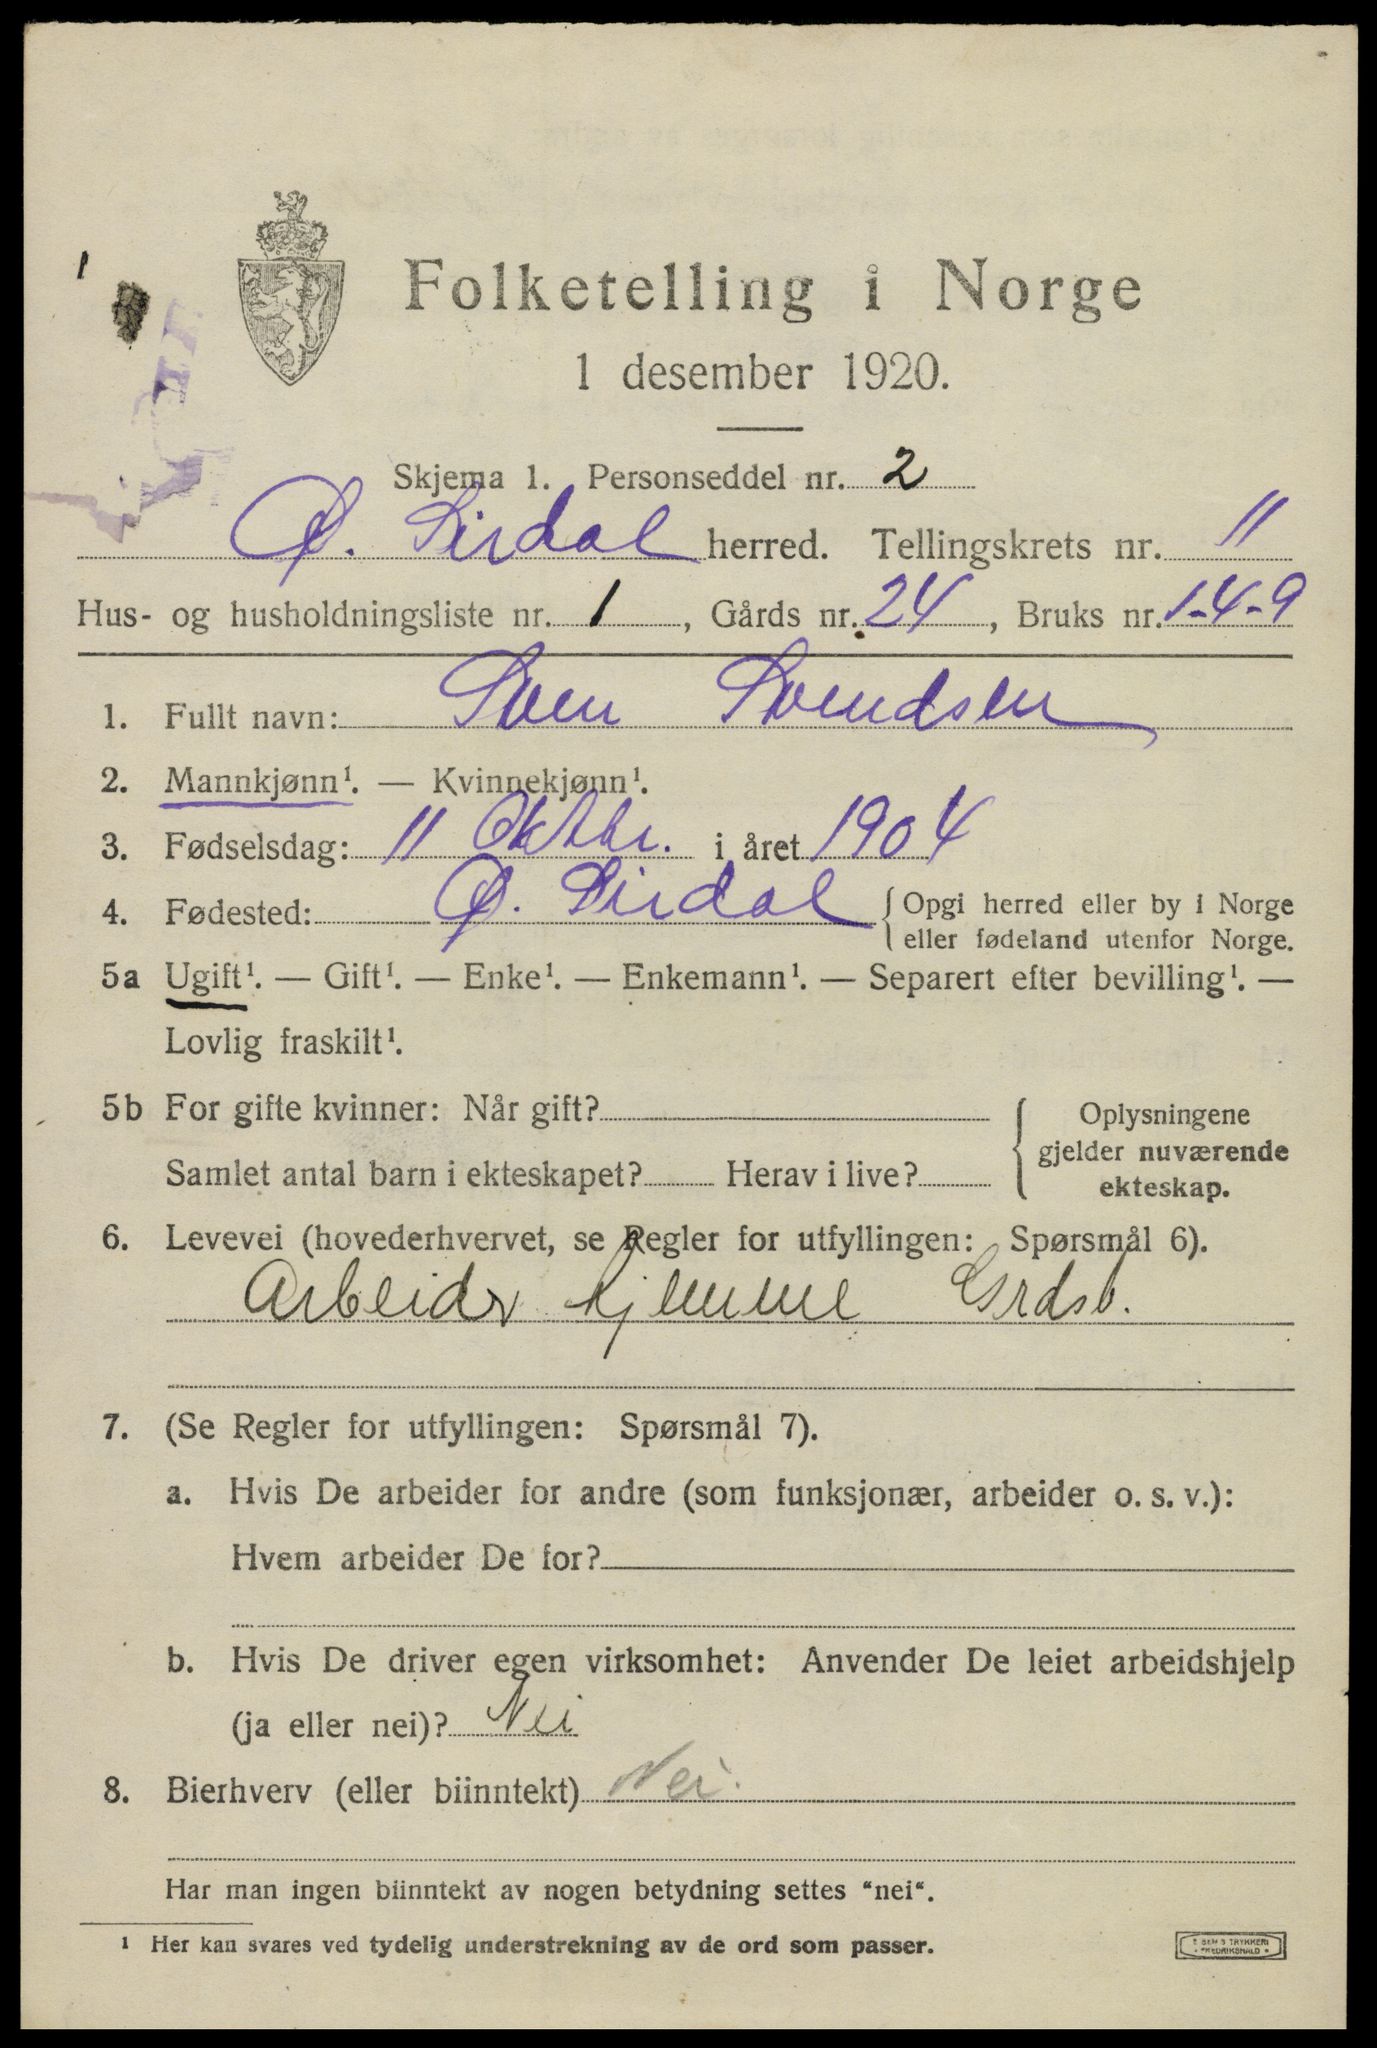 1
Folketelling i Norge
1 desember 1920.
Skjema 1. Personseddel nr. 2
Ø. Sirdal herred. Tellingskrets nr. 11
Hus- og husholdningsliste nr. 1, Gårds nr. 24, Bruks nr. 1-4-9
1. Fullt navn: Sven Svendsen
2. Mannkjønn¹. — Kvinnekjønn¹.
3. Fødselsdag: 11 Oktbr. i året 1904
4. Fødested: Ø. Sirdal { Opgi herred eller by i Norge
eller fødeland utenfor Norge.
5a Ugift¹. — Gift¹. — Enke¹. — Enkemann¹. — Separert efter bevilling¹. —
Lovlig fraskilt¹.
5b For gifte kvinner: Når gift? { Oplysningene
gjelder nuværende
Samlet antal barn i ekteskapet? Herav i live? ekteskap.
6. Levevei (hovederhvervet, se Regler for utfyllingen: Spørsmål 6).
Arbeidr hjemme Grdsb.
7. (Se Regler for utfyllingen: Spørsmål 7).
a. Hvis De arbeider for andre (som funksjonær, arbeider o. s. v.):
Hvem arbeider De for?
b. Hvis De driver egen virksomhet: Anvender De leiet arbeidshjelp
(ja eller nei)? Nei
8. Bierhverv (eller biinntekt) Nei.
Har man ingen biinntekt av nogen betydning settes “nei“.
¹ Her kan svares ved tydelig understrekning av de ord som passer.
TRYKKERI
FREDRIKSHALD